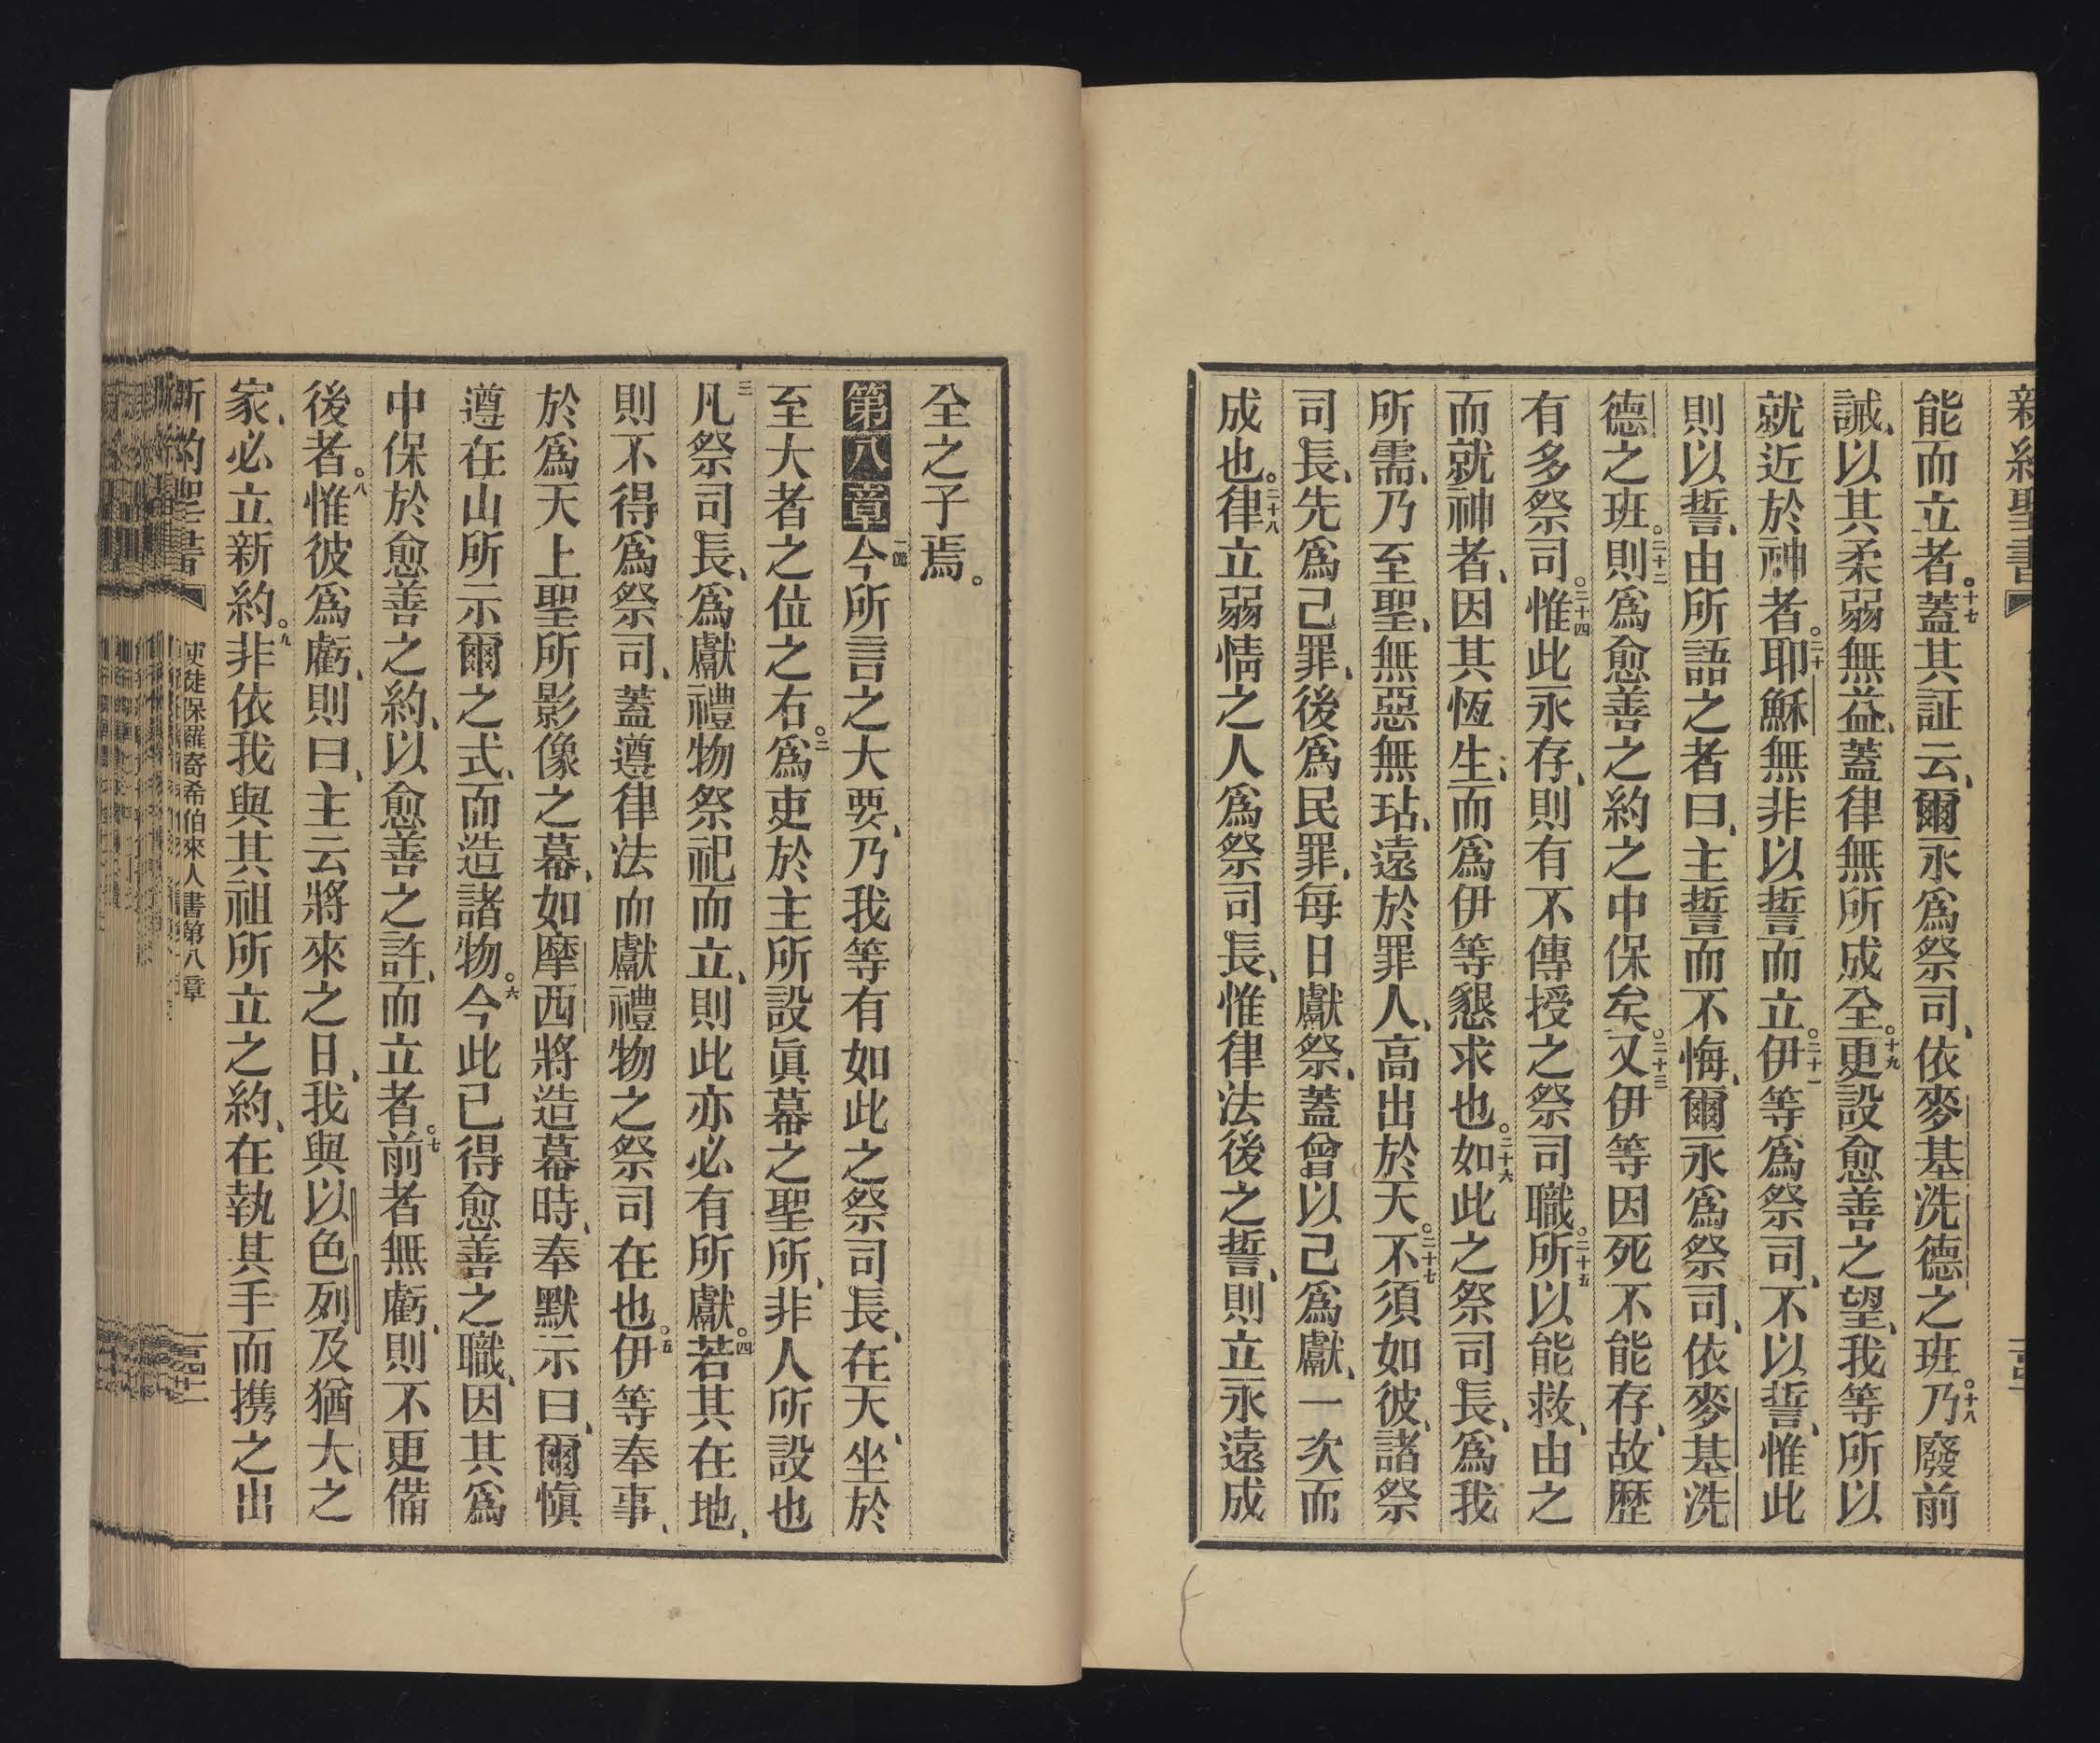 新約聖書
能而立者。十七蓋其証云、爾永爲祭司、依麥基洗德之班。十八乃廢前
誡、以其柔弱無益、蓋律無所成全。十九更設愈善之望、我等所以
就近於神者。二十耶穌無非以誓而立。二十一伊等爲祭司、不以誓、惟此
則以誓、由所語之者曰、主誓而不悔、爾永爲祭司、依麥基洗
德之班。二十二則爲愈善之約之中保矣。二十三又伊等因死不能存、故歷
有多祭司。二十四惟此永存、則有不傳授之祭司職。二十五所以能救、由之
而就神者、因其恆生、而爲伊等懇求也。二十六如此之祭司長、爲我
所需、乃至聖、無惡無玷、遠於罪人、高出於天。二十七不須如彼、諸祭
司長、先爲己罪、後爲民罪、每日獻祭、蓋曾以己爲獻、一次而
成也。二十八律立弱情之人爲祭司長、惟律法後之誓、則立永遠成
全之子焉。
第八章一節今所言之大要、乃我等有如此之祭司長、在天、坐於
至大者之位之右。二爲吏於主所設眞幕之聖所、非人所設也
三凡祭司長、爲獻禮物祭祀而立、則此亦必有所獻。四若其在地、
則不得爲祭司、蓋遵律法而獻禮物之祭司在也。五伊等奉事、
於爲天上聖所影像之幕、如摩西將造幕時、奉默示曰、爾愼
遵在山所示爾之式、而造諸物。六今此已得愈善之職、因其爲
中保於愈善之約、以愈善之許、而立者。七前者無虧、則不更備
後者。八惟彼爲虧、則曰、主云將來之日、我與以色列及猶大之
家、必立新約。九非依我與其祖所立之約、在執其手而携之出
新約聖書 使徒保羅寄希伯來人書第八章